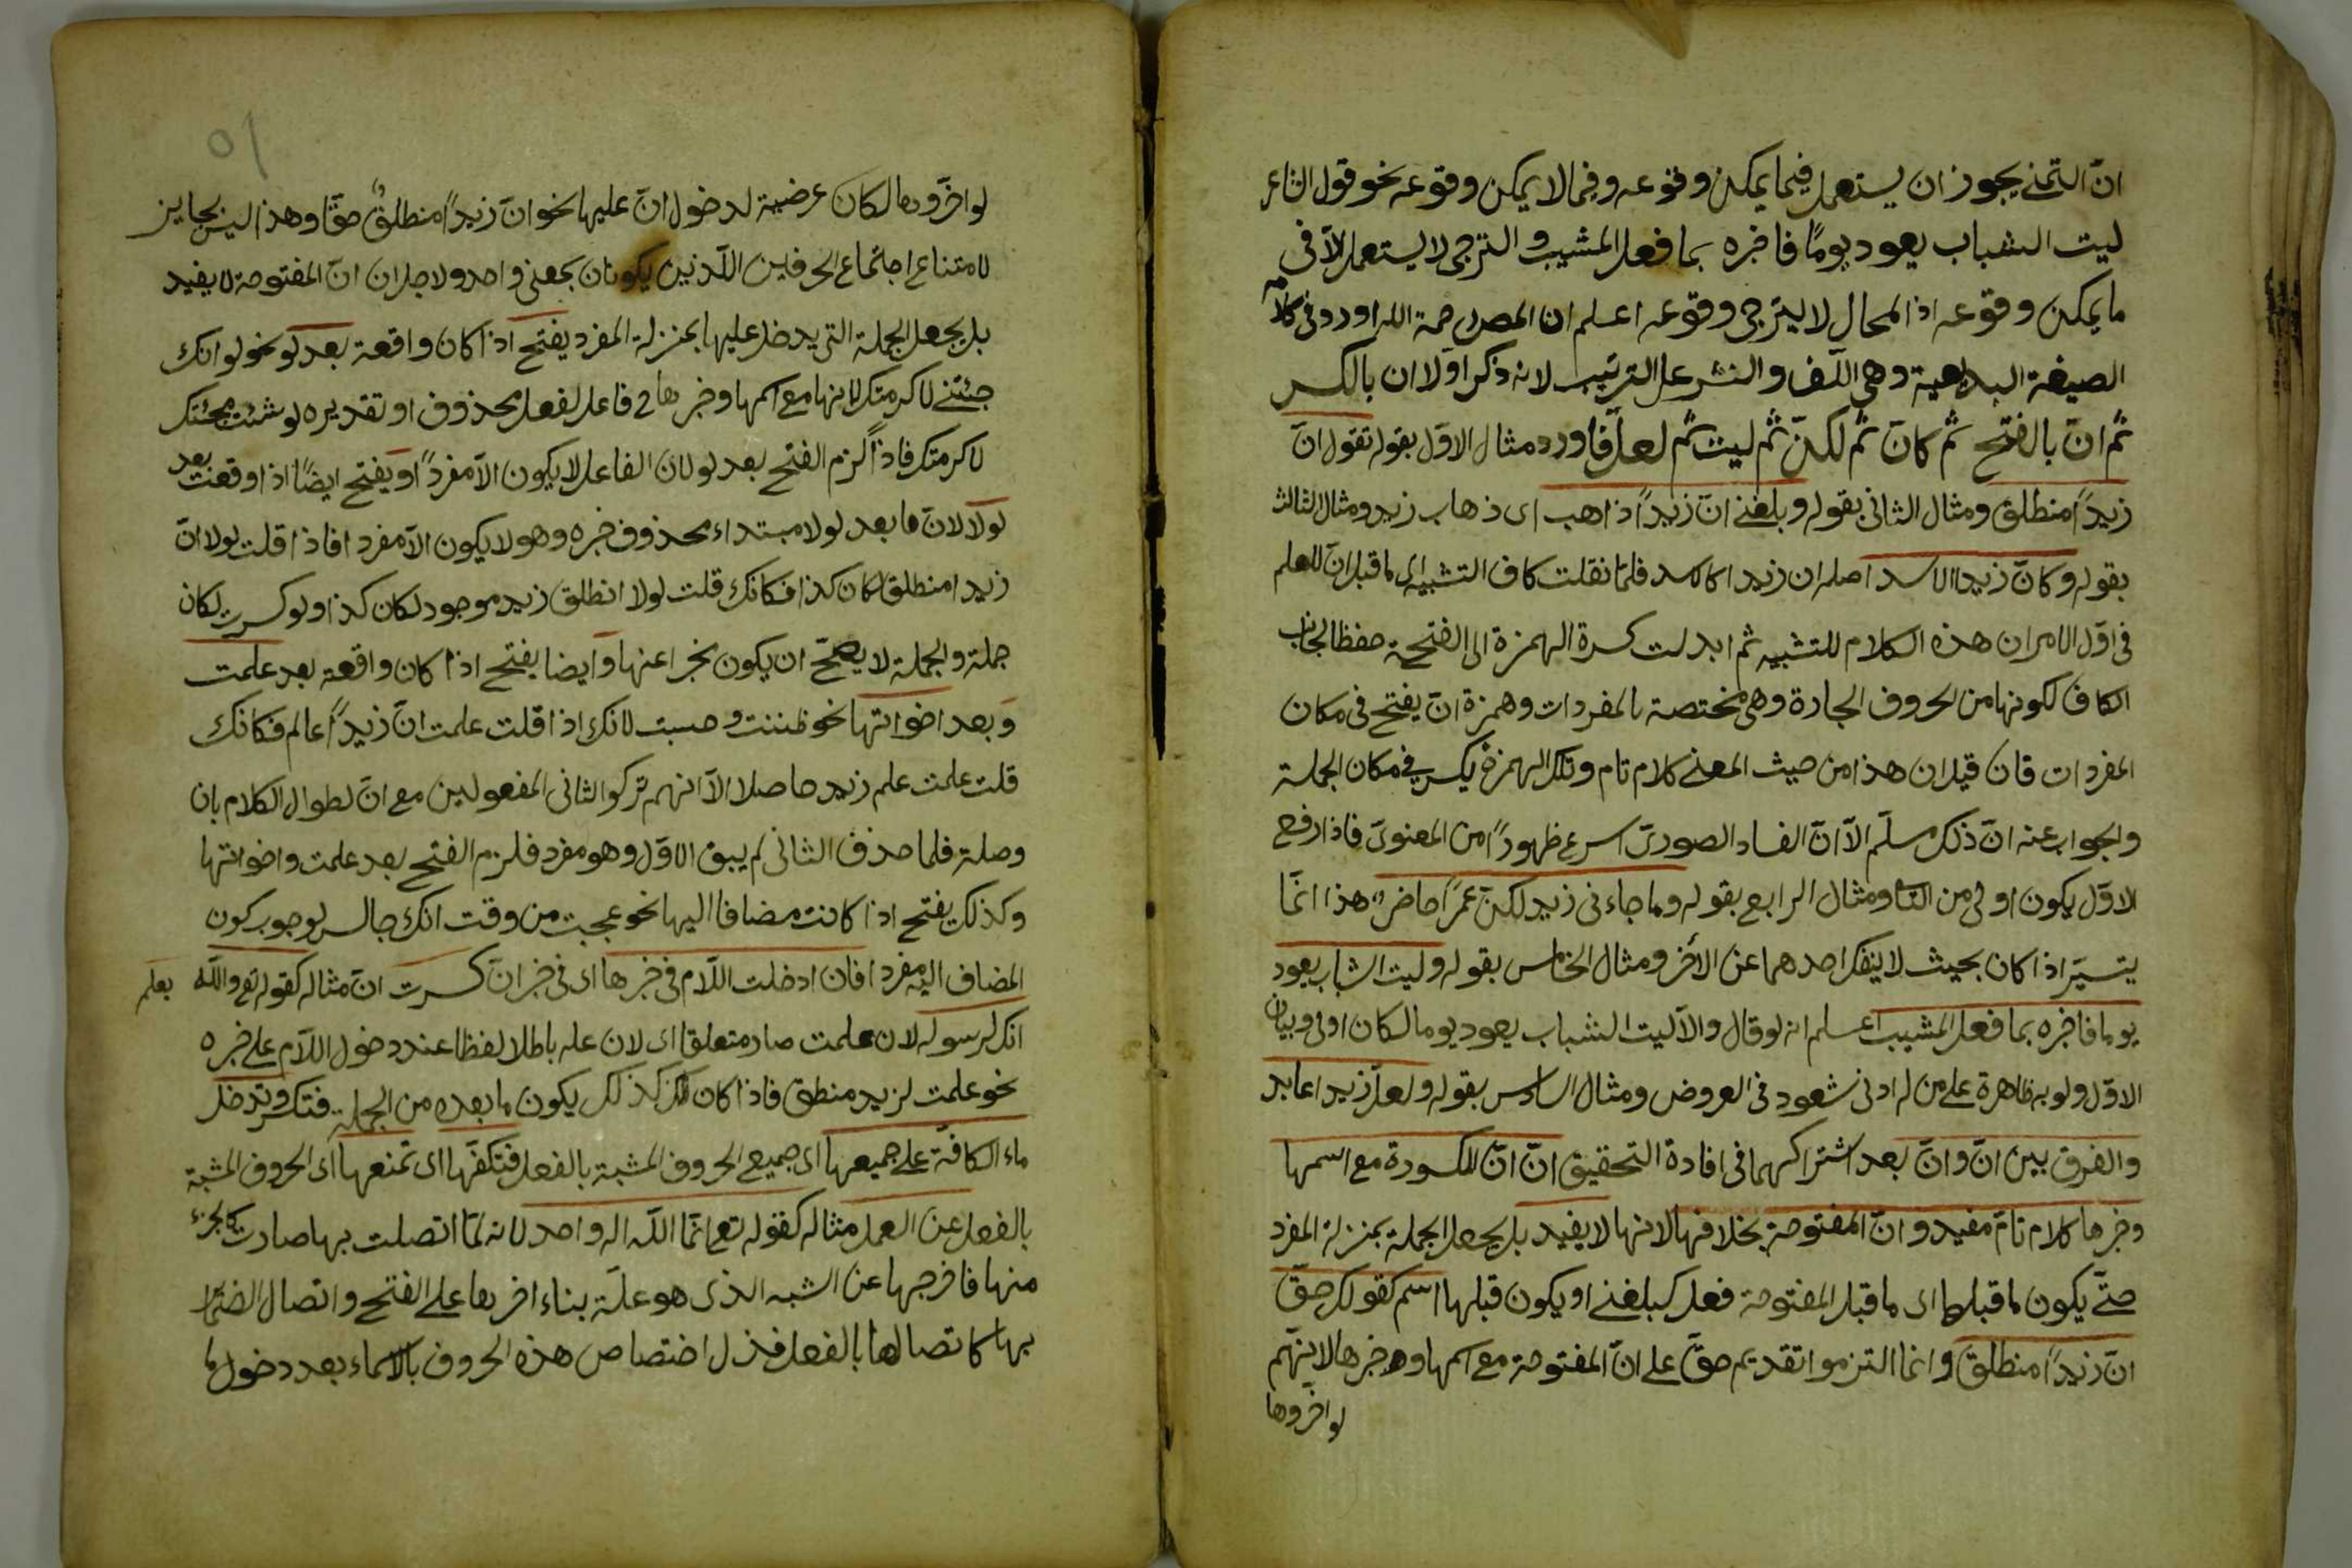 ان التمنى يجوز ان يستعمل فيما يمكن وقوعه وفيما لا يمكن وقوعه نحو قول الشاعر
ليت الشباب يعود يوما فاخبره بما فعل المشيب و الترجى لا يستعمل الا فى
ما يمكن وقوعه اذ المحال لا يترجى وقوعه اعلم ان المص رحمة الله اورد فى كلامه
الصيغة البديعية وهى اللف والنشر على الترتيب لانه ذكر اولا ان بالكسر
ثم انّ بالفتح ثم كانّ ثم لكنّ ثم ليت ثم لعلّ فاورد مثال الاول بقوله تقول انّ
زيداً منطلق ومثال الثانى بقوله وبلغنى انّ زيداً ذاهب اى ذهاب زيد ومثال الثالث
بقوله وكانّ زيدا الاسد اصله ان زيدا كالاسد فلما نقلت كاف التشبيه الى ما قبل انّ للعلم
فى اول الامر ان هذه الكلام للتشبيه ثم ابدلت كسرة الهمزة الى الفتحة حفظا لجانب
الكاف لكونها من الحروف الجارة وهى مختصة بالمفردات وهمزة انّ يفتح فى مكان
المفردات فان قيل ان هذا من حيث المعنى كلام تام وتلك الهمزة يكسر فى مكان الجملة
والجواب عنه انّ ذلك مسلّم الا انّ الفساد الصورىّ اسرع ظهوراً من المعنوىّ فاذا رفع
الاول يكون اولى من الثا ومثال الرابع بقوله وما جاءنى زيد لكنّ عمراً حاضر هذا انما
يتيسر اذا كان بحيث لا ينفك احدهما عن الأخر ومثال الخامس بقوله وليت الشباب يعود
يوما فاخبره بما فعل المشيب اعلم انه لو قال والا ليت الشباب يعود يوما لكان اولى وبيان
الاول ولوبه ظاهرة على من له ادنى شعور فى العروض ومثال السادس بقوله ولعلّ زيدا عابد
والفرق بين انّ وانّ بعد اشتراكهما فى افادة التحقيق انّ انّ المكسورة مع اسمها
وخبرها كلام تامّ مفيد و انّ المفتوحة بخلافها لانها لا يفيد بل يجعل الجملة بمنزلة المفرد
حتى يكون ما قبلها اى ما قبل المفتوحة فعل كبلغنى او يكون قبلها اسم كقولك حقّ
انّ زيداً منطلق وانما التزموا تقديم حقّ على انّ المفتوحة مع اسمها وخبرها لانهم
لو اخروها
٥١
لو اخروها لكان عرضية لدخول انّ عليها نحو انّ زيداً منطلق حقا وهذا ليس بجايز
لامتناع اجتماع الحرفين اللذين يكونان بمعنى واحد ولاجل ان انّ المفتوحة لا يفيد
بل يجعل الجملة التى يدخل عليها بمنزلة المفرد يفتح اذا كان واقعة بعد لو نحو لو انك
جئتنى لاكرمتك لانها مع اسمها وخبرها فى فاعل لفعل محذوف او تقديره لو ثبت مجئتك
لاكرمتك فاذاً لزم الفتح بعد لو لان الفاعل لا يكون الا مفرداً او يفتح ايضاً اذا وقعت بعد
لولا لانّ ما بعد لولا مبتداء محذوف خبره وهو لا يكون الا مفردا فاذا قلت لولا انّ
زيدا منطلق لكان كذا فكانك قلت لولا انطلاق زيد موجود لكان كذا ولو كسرت لكان
جملة والجملة لا يصحّ ان يكون مخبرا عنها وايضا يفتح اذا كان واقعة بعد علمت
وبعد اخواتها نحو ظننت وحسبت لانك اذا قلت علمت انّ زيداً عالم فكانك
قلت علمت علم زيد حاصلا الا انهم تركوا الثانى المفعولين مع انّ لطوال الكلام بان
وصلته فلما حذف الثانى لم يبق الاول وهو مفرد فلزم الفتح بعد علمت واخواتها
وكذلك يفتح اذا كانت مضافا اليها نحو عجبت من وقت انك جالس لوجوب كون
المضاف اليه مفردا فان ادخلت اللام فى خبرها اى فى خبر انّ كسرت انّ مثاله كقوله تع والله يعلم
انك لرسوله لان علمت صار متعلقا اى لان عله باطلا لفظا عند دخول اللام على خبره
نحو علمت لزيد منطلق فاذا كان كذلك يكون ما بعده من الجملة وتدخل
ماء الكافة على جميعها اى جميع الحروف المشبة بالفعل فتكفّها اى تمنعها اى الحروف المشبة
بالفعل عن العمل مثاله كقوله تع انما الله اله واحد لانه لما اتصلت بها صارت كالجزء
منها فاخرجها عن الشبه الذى هو علّة بناء اخرها على الفتح واتصال الضمائر
بها كاتصالها بالفعل اختصاص هذه الحروف بالاسماء بعد دخول ما